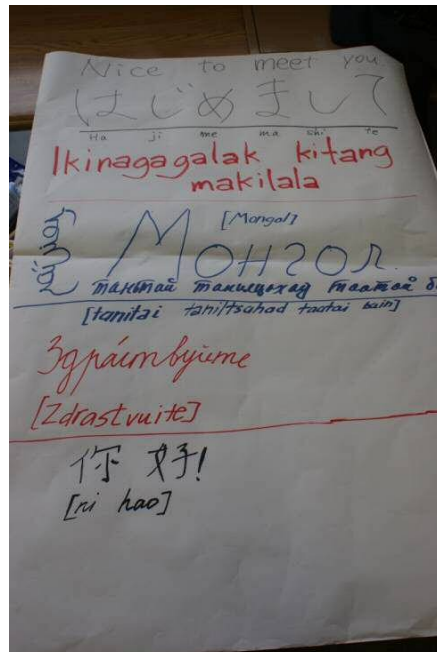 Nice to meet you
はじめまして
Ha ji me ma shi te
Ikinagagalak kitang
makilala
[Mongol]
Монгол
тантай танилцахад таатай б
[tanitai taniltsahad taatai bain]
Здраствуйте
[Zdrastvuite]
你好!
[ni hao]